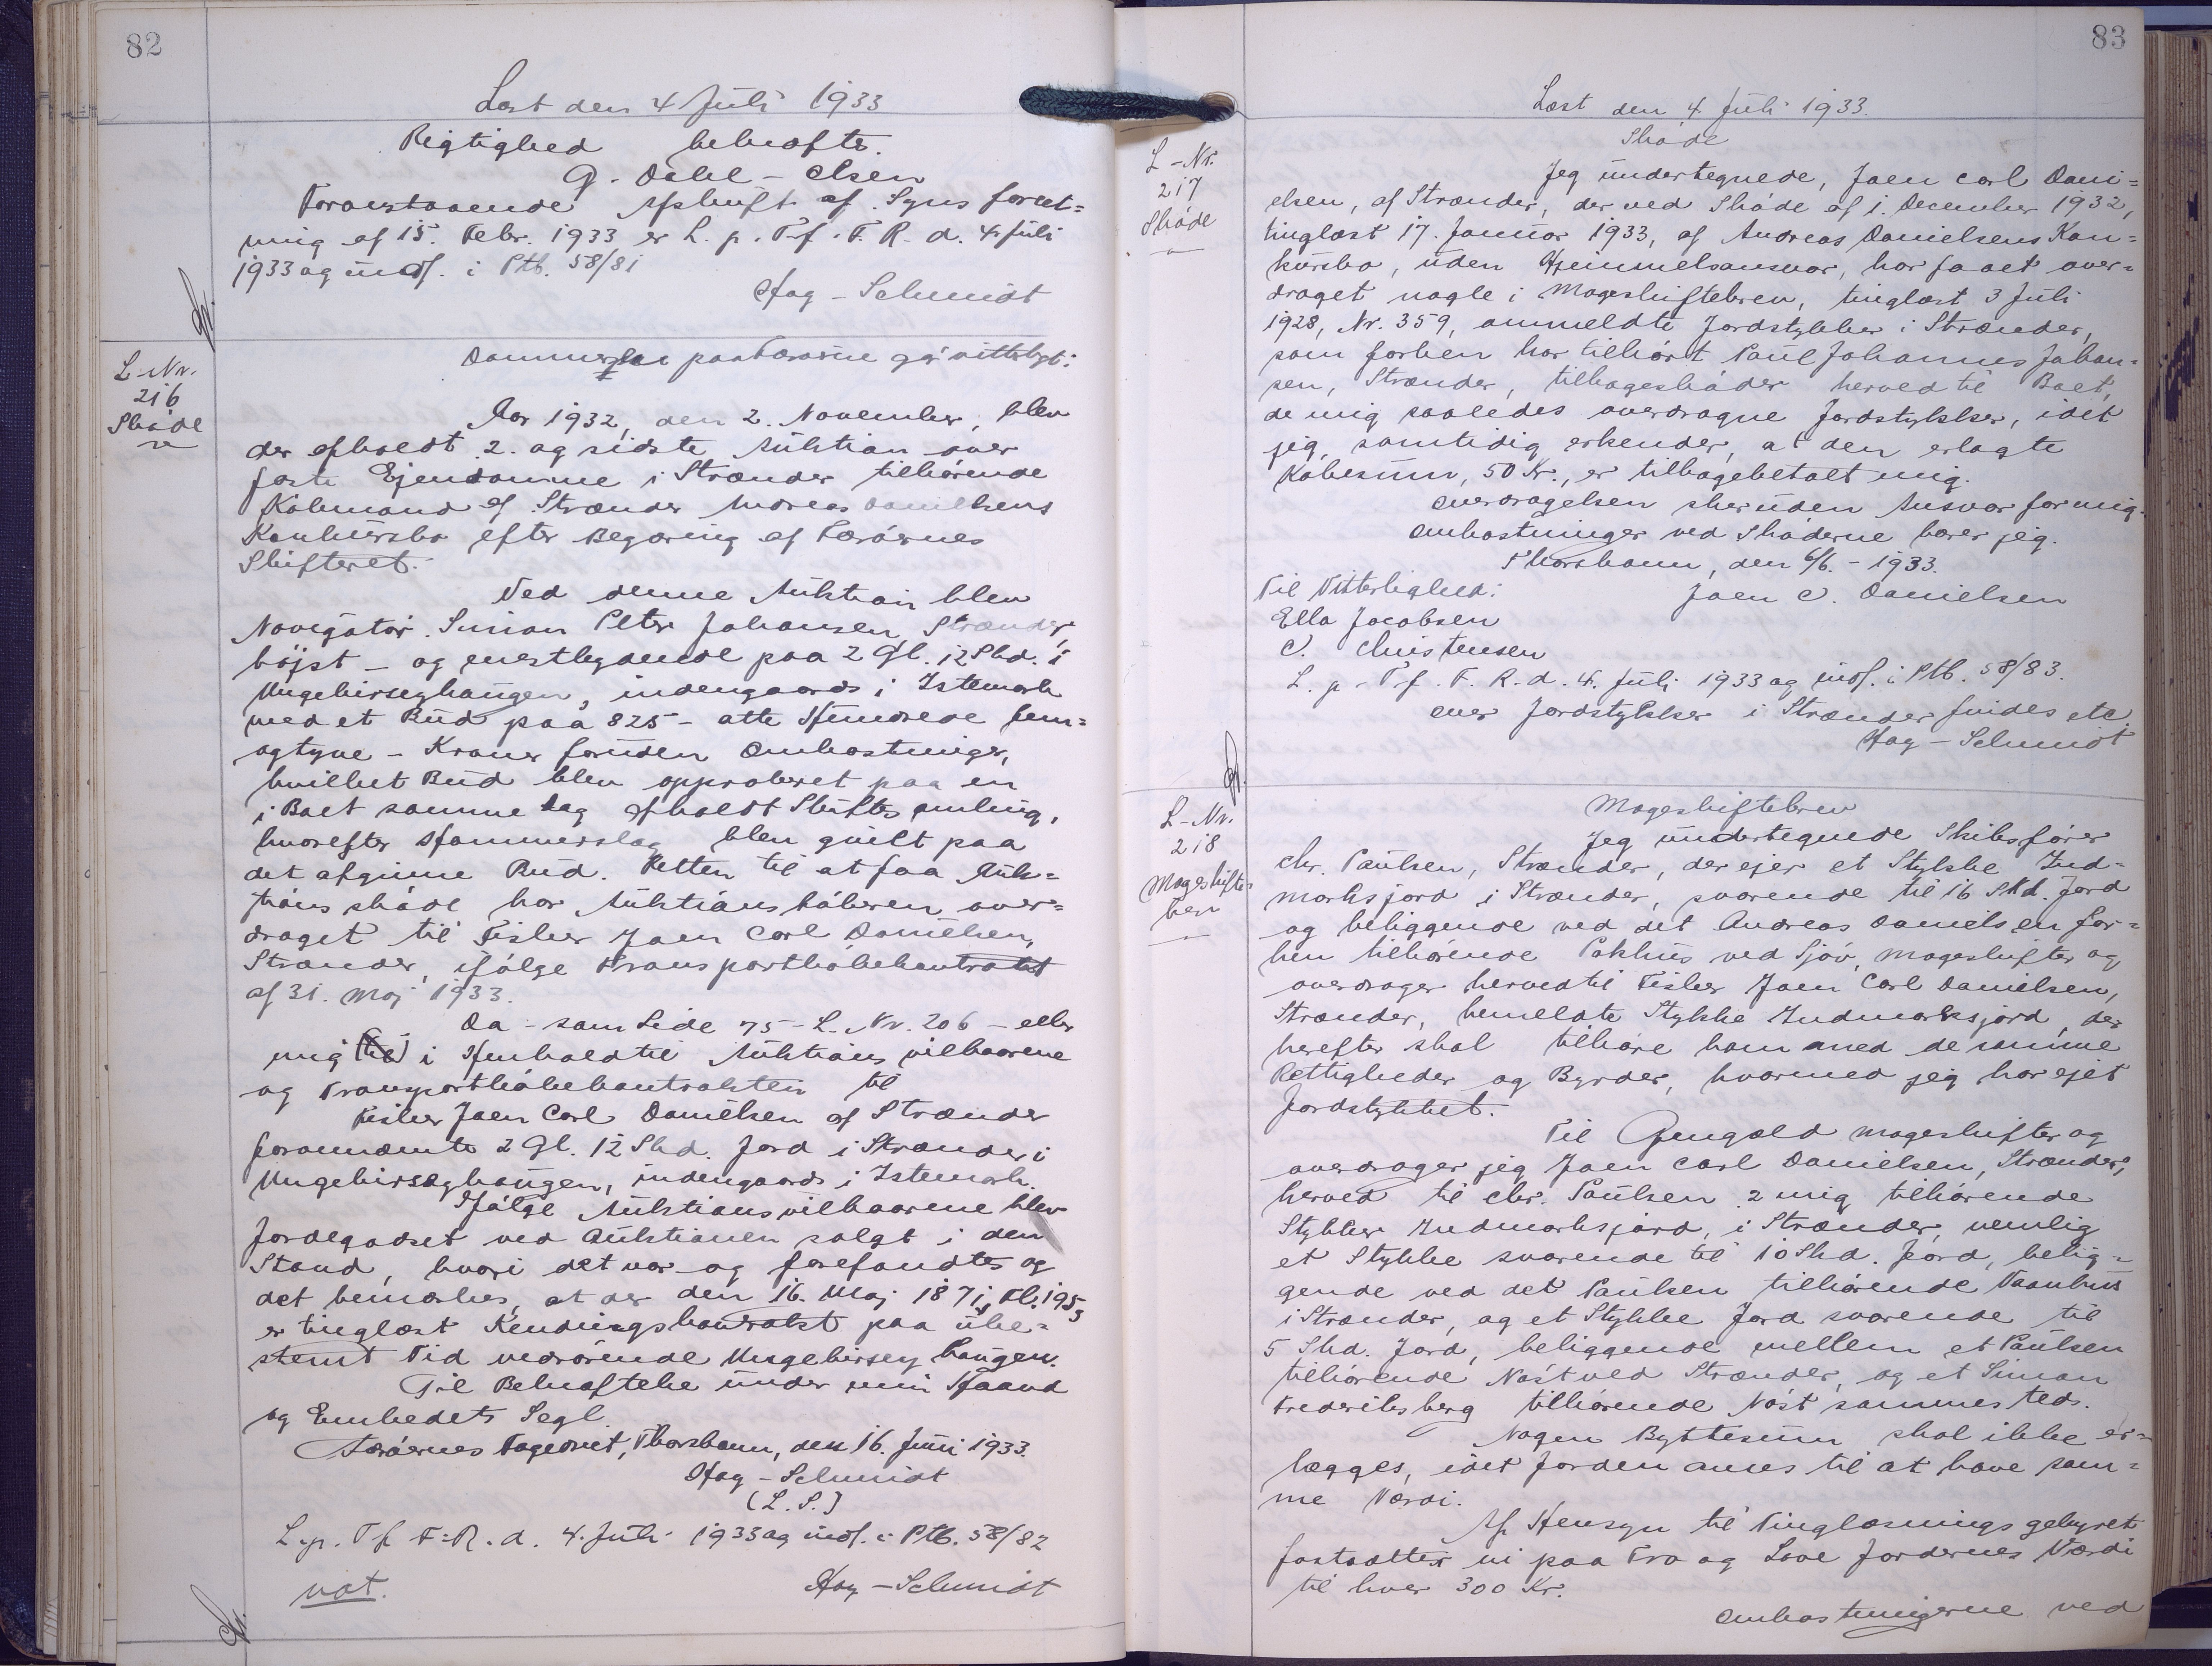 82
Læst den 4 Juli 1933
Rigtighed bekræftes.
G. Dahl-Olsen
Foranstaaende Afskrift af Synsforret=
ning af 15. Febr. 1933 er L. p. T. f. F. R. d. 4 Juli
1933 og indf. i Ptb. 58/81
Høg-Schmidt
L-Nr.
216
Skøde
Dommeren paa Færøerne gør vitterligt:
Aar 1932, den 2. November, blev
der afholdt 2. og sidste Auktion over
faste Ejendomme i Strænder tilhørende
Købmand af Strænder Andreas Danielsens
Konkursbo efter Begæring af Færøernes
Skifteret.
Ved denne Auktion blev
Navigatør Simon Peter Johansen, Strænder,
højst- og enestbydende paa 2 Gl. 12 Skd. i
Ungebirseyhaugen, indengaards i Istemark
med et Bud paa 825 - otte Hundrede fem=
ogtyve - Kroner foruden Omkostninger,
hvilket Bud blev approberet paa en
i Boet samme Dag afholdt Skiftesamling,
hvorefter Hammerslag blev givet paa
det afgivne Bud. Retten til at faa Auk=
tionsskøde har Auktionskøberen over=
draget til Fisker Joen Carl Danielsen,
Strænder, ifølge Transportkøbekontrakt
af 31. Maj 1933.
Da - som Side 75 - L. Nr. 206 - eller
mig (til) i Henhold til Auktionsvilkaarene
og Transportkøbekontrakten til
Fisker Joen Carl Danielsen af Strænder
forannævnte 2 Gl. 12 Skd. Jord i Strænder i
Ungebirseyhaugen, indengaards i Istemark.
Ifølge Auktionsvilkaarene blev
Jordegodset ved Auktionen solgt i den
Stand, hvori det var og forefandtes og
det bemærkes, at der den 16. Maj 1871, Fl. 1953
er tinglæst Kendingskontrakt paa ube=
stemt Tid vedrørende Ungebirseyhaugen.
Til Bekræftelse under min Haand
og Embedets Segl.
Færøernes Fogedret, Thorshavn, den 16. Juni 1933.
Høg-Schmidt
(L. S.)
L. p. T. f. F. R. d. 4. Juli 1933 og indf. i Ptb. 58/82
not.
Høg-Schmidt
83
Læst den 4. Juli 1933.
L-Nr.
217
Skøde
Skøde
Jeg undertegnede, Joen Carl Dani=
elsen, af Strænder, der ved Skøde af 1. December 1932,
tinglæst 17. Januar 1933, af Andreas Danielsens Kon=
kursbo, uden Hjemmelsansvar, har faaet over=
draget nogle i Mageskiftebrev, tinglæst 3 Juli
1928, Nr. 359, ommeldte Jordstykker i Strænder,
som forhen har tilhørt Poul Johannes Johan=
sen, Strænder, tilbageskøder herved til Boet,
de mig saaledes overdragne Jordstykker, idet
jeg samtidig erkender, at den erlagte
Købesum, 50 Kr., er tilbagebetalt mig.
Overdragelsen sker uden Ansvar for mig.
Omkostninger ved Skøderne bærer jeg.
Thorshavn, den 6/6. - 1933.
Til Vitterlighed:
Joen C. Danielsen
Ella Jacobsen
C. Christensen
L. p. T. f. F. R. d. 4. Juli 1933 og indf. i Ptb. 58/83.
over Jordstykker i Strænder findes etc.
Høg-Schmidt
L-Nr.
218
Mageskifte-
brev
Mageskiftebrev
Jeg undertegnede Skibsfører
Chr. Paulsen, Strænder, der ejer et Stykke Ind=
marksjord i Strænder, svarende til 16 Skd. Jord
og beliggende ved det Andreas Danielsen for=
hen tilhørende Pakhus ved Sjøv, mageskifter og
overdrager herved til Fisker Joen Carl Danielsen,
Strænder, bemeldte Stykke Indmarksjord, der
herefter skal tilhøre ham med de samme
Rettigheder og Byrder, hvormed jeg har ejet
Jordstykket.
Til Gengæld mageskifter og
overdrager jeg Joen Carl Danielsen, Strænder,
herved til Chr. Paulsen 2 mig tilhørende
Stykker Indmarksjord, i Strænder, nemlig
et Stykke svarende til 10 Skd. Jord, belig=
gende ved det Paulsen tilhørende Vaanhus
i Strænder, og et Stykke Jord svarende til
5 Skd. Jord, beliggende mellem et Paulsen
tilhørende Nøst ved Strænder, og et Simon
Frederiksberg tilhørende Nøst sammesteds.
Nogen Byttesum skal ikke er=
lægges, idet Jorden anses til at have sam=
me Værdi.
Af Hensyn til Tinglæsningsgebyret
fastsætter vi paa Tro og Love Jordernes Værdi
til hver 300 Kr.
Omkostningerne ved